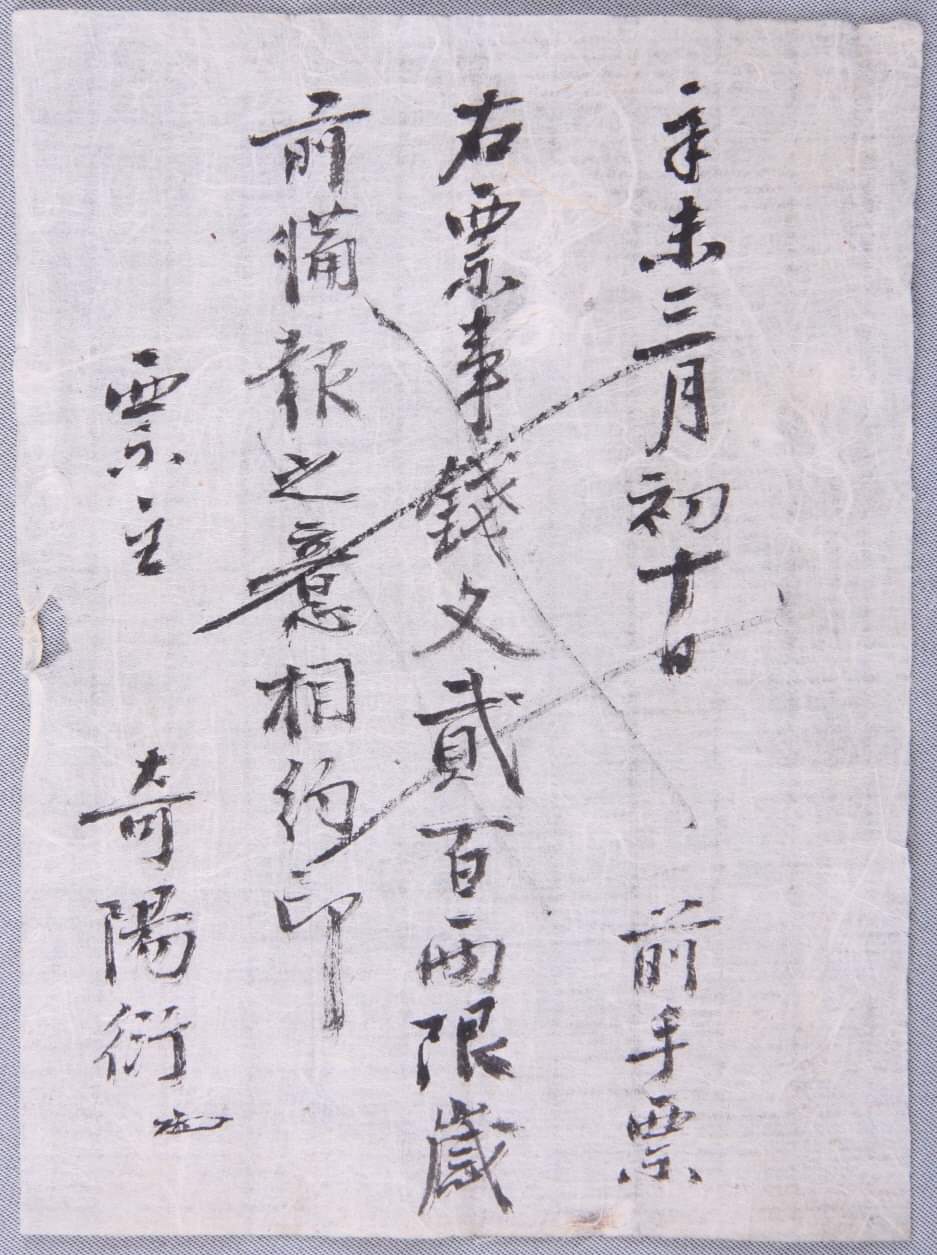 辛未三月初十日 前手票
右票事錢文貳百兩限歲
前備報之意相約印
票主 奇陽衍